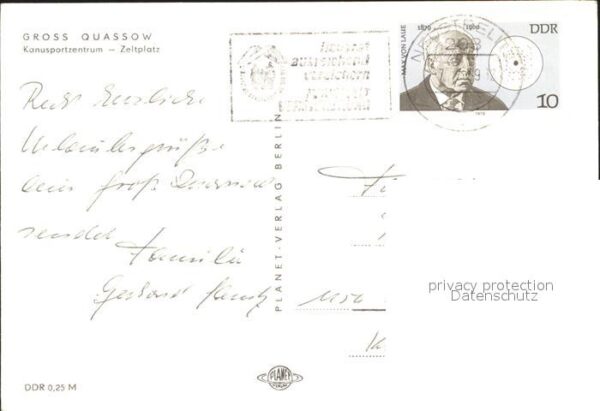 GROSS QUASSOW
Kanusportzentrum — Zeltplatz
Recht herzliche
Urlaubsgrüße
aus Groß Quassow
sendet
Familie
Gerhard
PLANET-VERLAG BERLIN
Hausrat
ausreichend
versichern
MAX VON LAUE
1879 1960
DDR
10
1979
Fa
1150
privacy protection
Datenschutz
PLANET
VERLAG
DDR 0,25 M